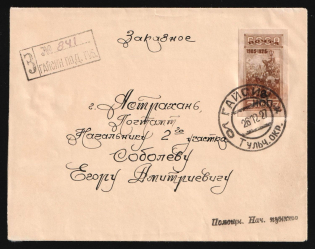 Заказное
З № 841
ГАЙСИН ПОД. ГУБ.
1905-1925
ГАЙСИН
26.12.27
ТУЛЬЧ. ОКР.
г. Астрахань,
Почтамт
Начальнику 2 го участка
Соболеву
Егору Дмитриевичу
Помощн. Нач. пункта